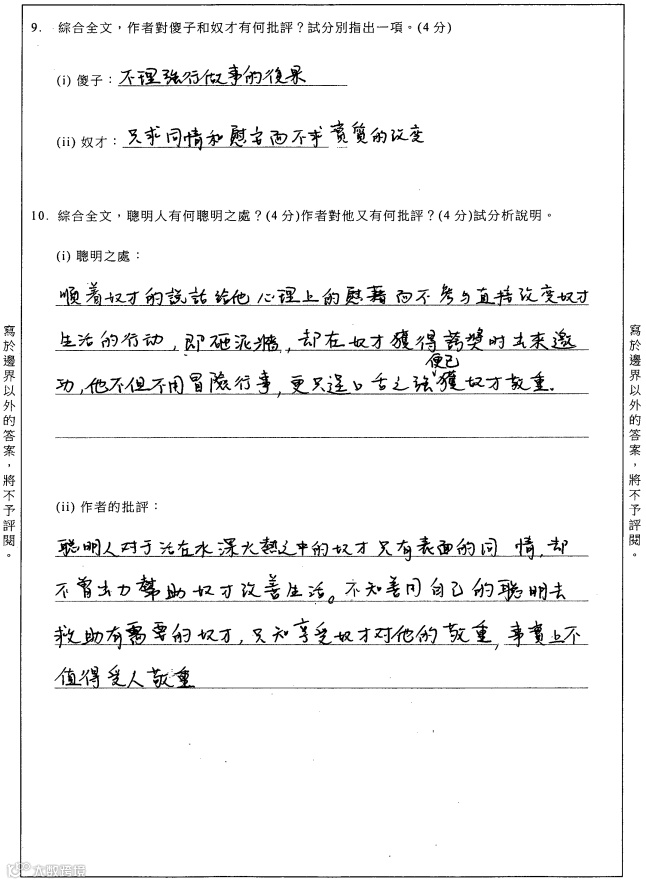 9. 綜合全文，作者對傻子和奴才有何批評？試分別指出一項。(4 分)
(i) 傻子：不理強行做事的後果
(ii) 奴才：只求同情和慰客而不求實質的改变
10. 綜合全文，聰明人有何聰明之處？(4 分)作者對他又有何批評？(4 分)試分析說明。
(i) 聰明之處：
順着奴才的說話給他心理上的慰藉而不參与直接改变奴才
生活的行动，即砸泥牆，却在奴才獲得誇獎时出來邀
便已
功，他不但不用冒險行事，更只逞口舌之強獲奴才敬重.
(ii) 作者的批評：
聪明人对于活在水深火熱之中的奴才只有表面的同情，却
不曾出力幫助奴才改善生活。不知善用自己的聰明去
救助有需要的奴才，只知享受奴才对他的敬重，事實上不
值得受人敬重
寫於邊界以外的答案，將不予評閱。
寫於邊界以外的答案，將不予評閱。
大數跨境